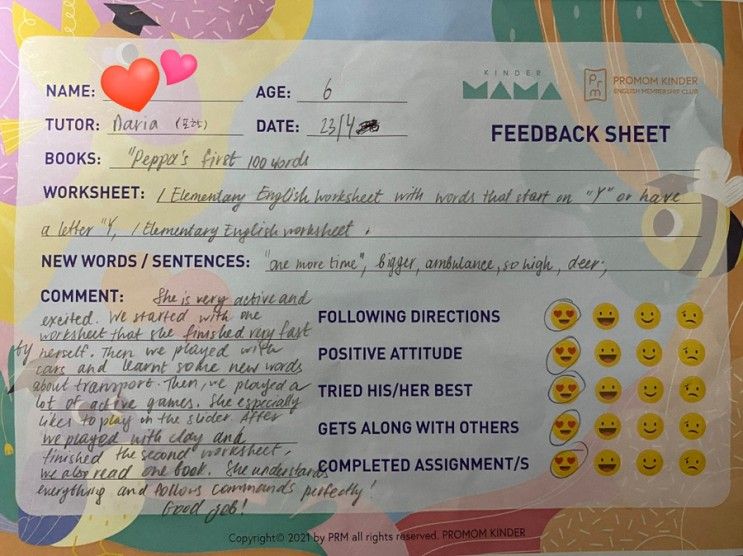 KINDER
MAMA
PRM
PROMOM KINDER
ENGLISH MEMBERSHIP CLUB
NAME:
AGE: 6
TUTOR: Daria
DATE: 23/4
FEEDBACK SHEET
BOOKS: "Peppa's first 100 words
WORKSHEET: 1 Elementary English Worksheet with words that start on "Y" or have
a letter "Y, 1 Elementary English worksheet.
NEW WORDS / SENTENCES: "one more time", bigger, ambulance, so high, deer;
COMMENT: She is very active and
excited. We started with one
worksheet that she finished very fast
by herself. Then we played with
cars and learnt some new words
about transport. Then, we played a
lot of active games. She especially
likes to play in the slider. After
we played with clay and
finished the second worksheet,
we also read one book. She understands
everything and follows commands perfectly!
Good job!
FOLLOWING DIRECTIONS
POSITIVE ATTITUDE
TRIED HIS/HER BEST
GETS ALONG WITH OTHERS
COMPLETED ASSIGNMENT/S
Copyright© 2021 by PRM all rights reserved. PROMOM KINDER